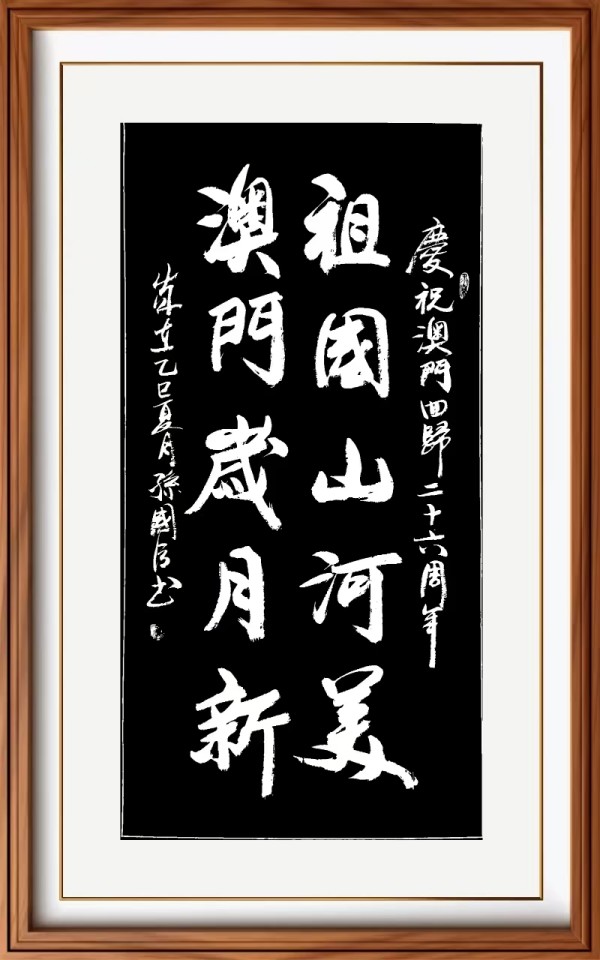 慶祝澳門回歸二十六周年
祖國山河美
澳門歲月新
歲在乙巳夏月孫國書